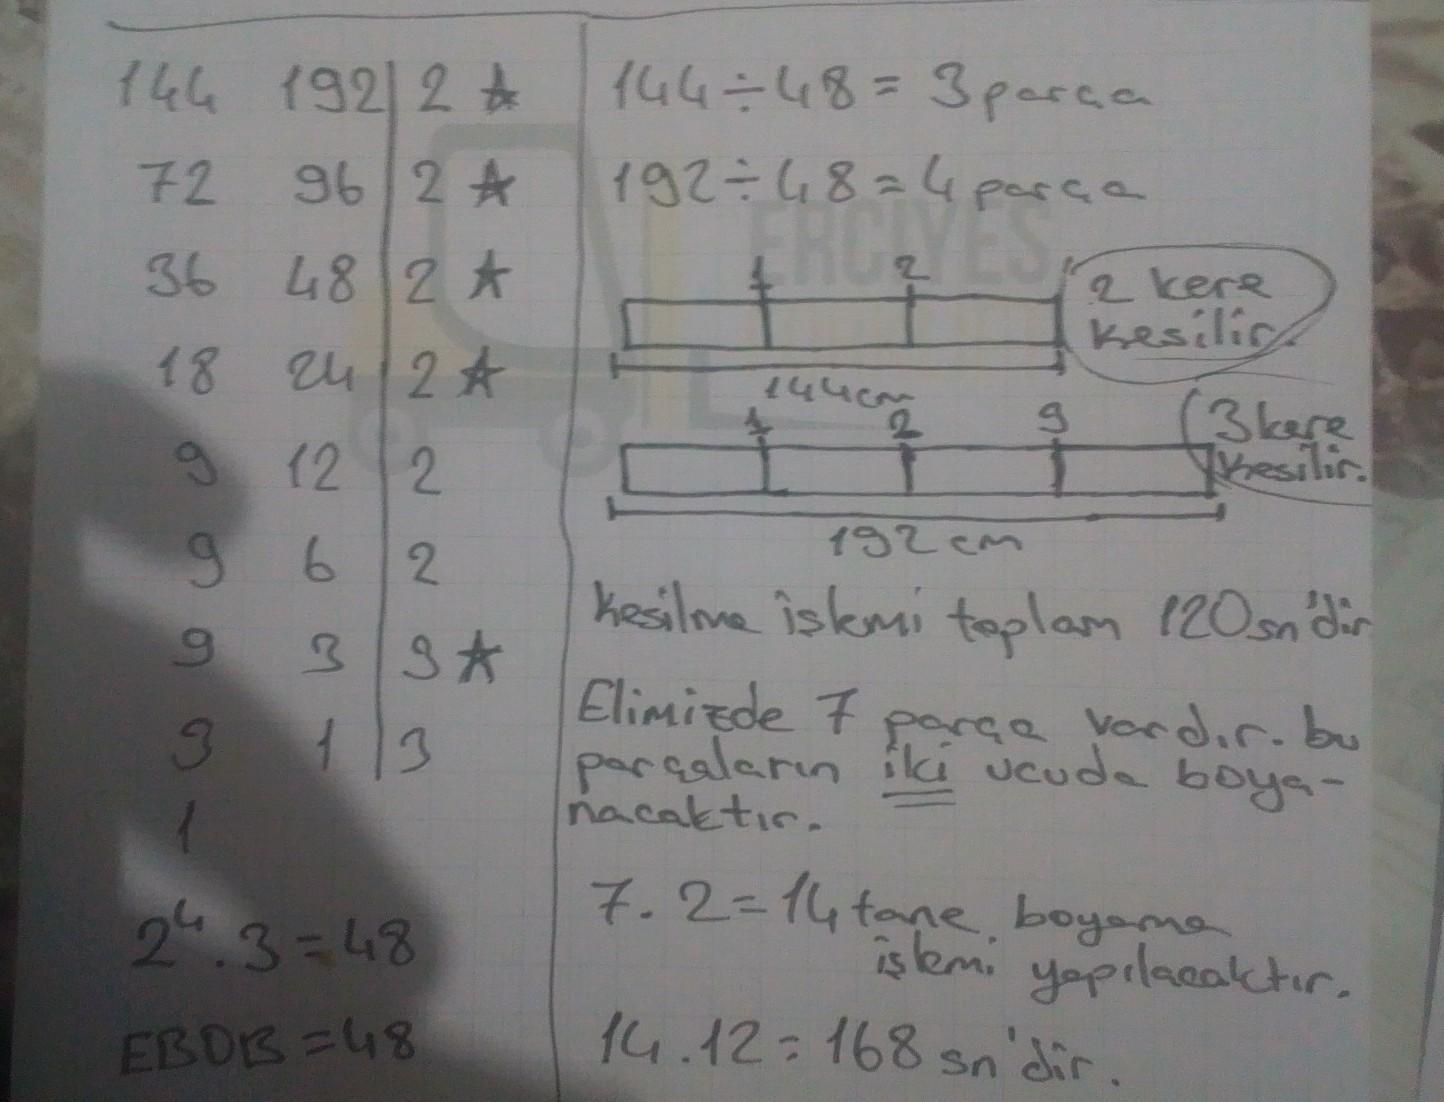 144 192 | 2 ★
72 96 | 2 ★
36 48 | 2 ★
18 24 | 2 ★
9 12 | 2
9 6 | 2
9 3 | 3 ★
3 1 | 3
1
2⁴ . 3 = 48
EBOB = 48
144 ÷ 48 = 3 parça
192 ÷ 48 = 4 parça
ERCİYES
1 2
2 kere
kesilir.
144 cm
1 2 3
3 kere
kesilir.
192 cm
Kesilme işlemi toplam 120 sn'dir
Elimizde 7 parça vardır. bu
parçaların iki ucuda boya-
nacaktır.
7. 2 = 14 tane boyama
işlemi yapılacaktır.
14 . 12 = 168 sn'dir.